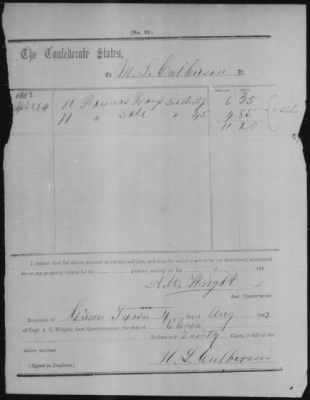 [No. 22.]
The Confederate States,
1863
11 Pounds
11 " Sole " 45
6 35
4 85
11 20
I certify that the above account is correct and just, and that the articles are to be (or have been) accounted
for on my property return for the quarter ending on the of 186
A.U. Wright
Asst. Quartermaster.
Received at Gilmer Texas 4 Aug 1863
of Capt. A. U. Wright, Asst. Quartermaster, the sum of Eleven
Dollars and Twenty Cents, in full of the
above account.
(Signed in Duplicate.)
W. L. Culberson